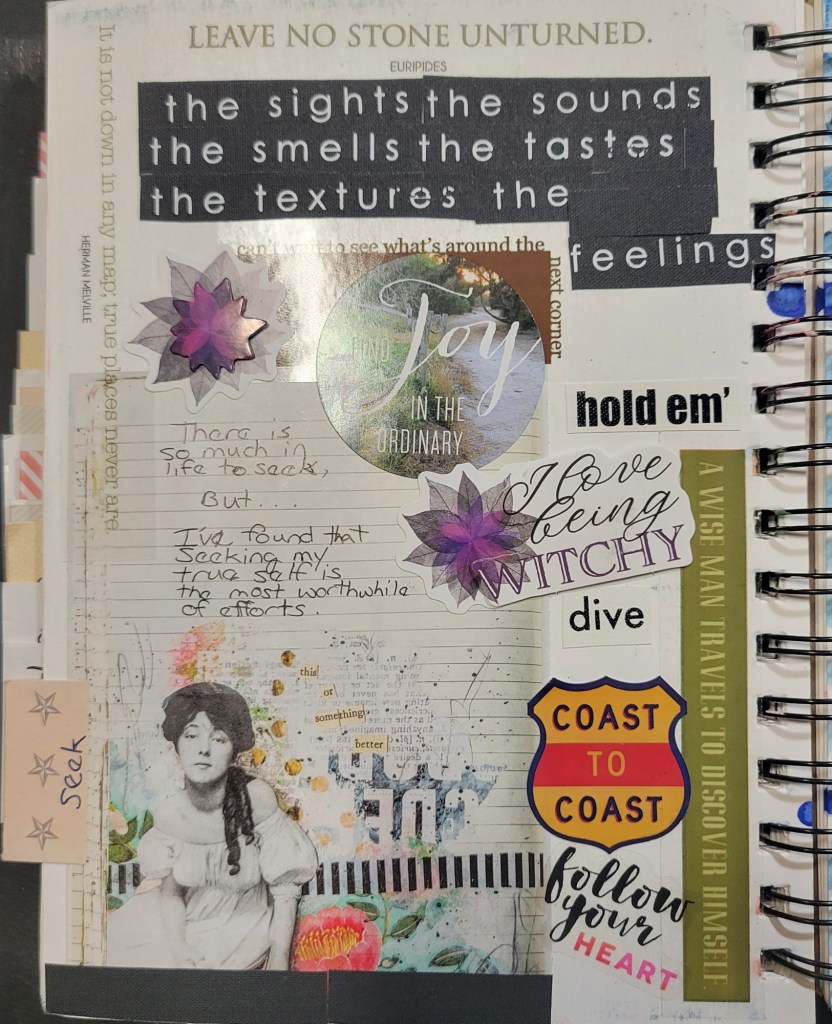 LEAVE NO STONE UNTURNED.
EURIPIDES
It is not down in any map; true places never are
HERMAN MELVILLE
the sights the sounds
the smells the tastes
the textures the
feelings
can't wait to see what's around the
next corner
FIND
Joy
IN THE
ORDINARY
hold em'
There is
so much in
life to seek,
But....
I've found that
seeking my
true self is
the most worthwhile
of efforts.
I love
being
WITCHY
dive
A WISE MAN TRAVELS TO DISCOVER HIMSELF
this
or
something
better
COAST
TO
COAST
follow
your
HEART
seek